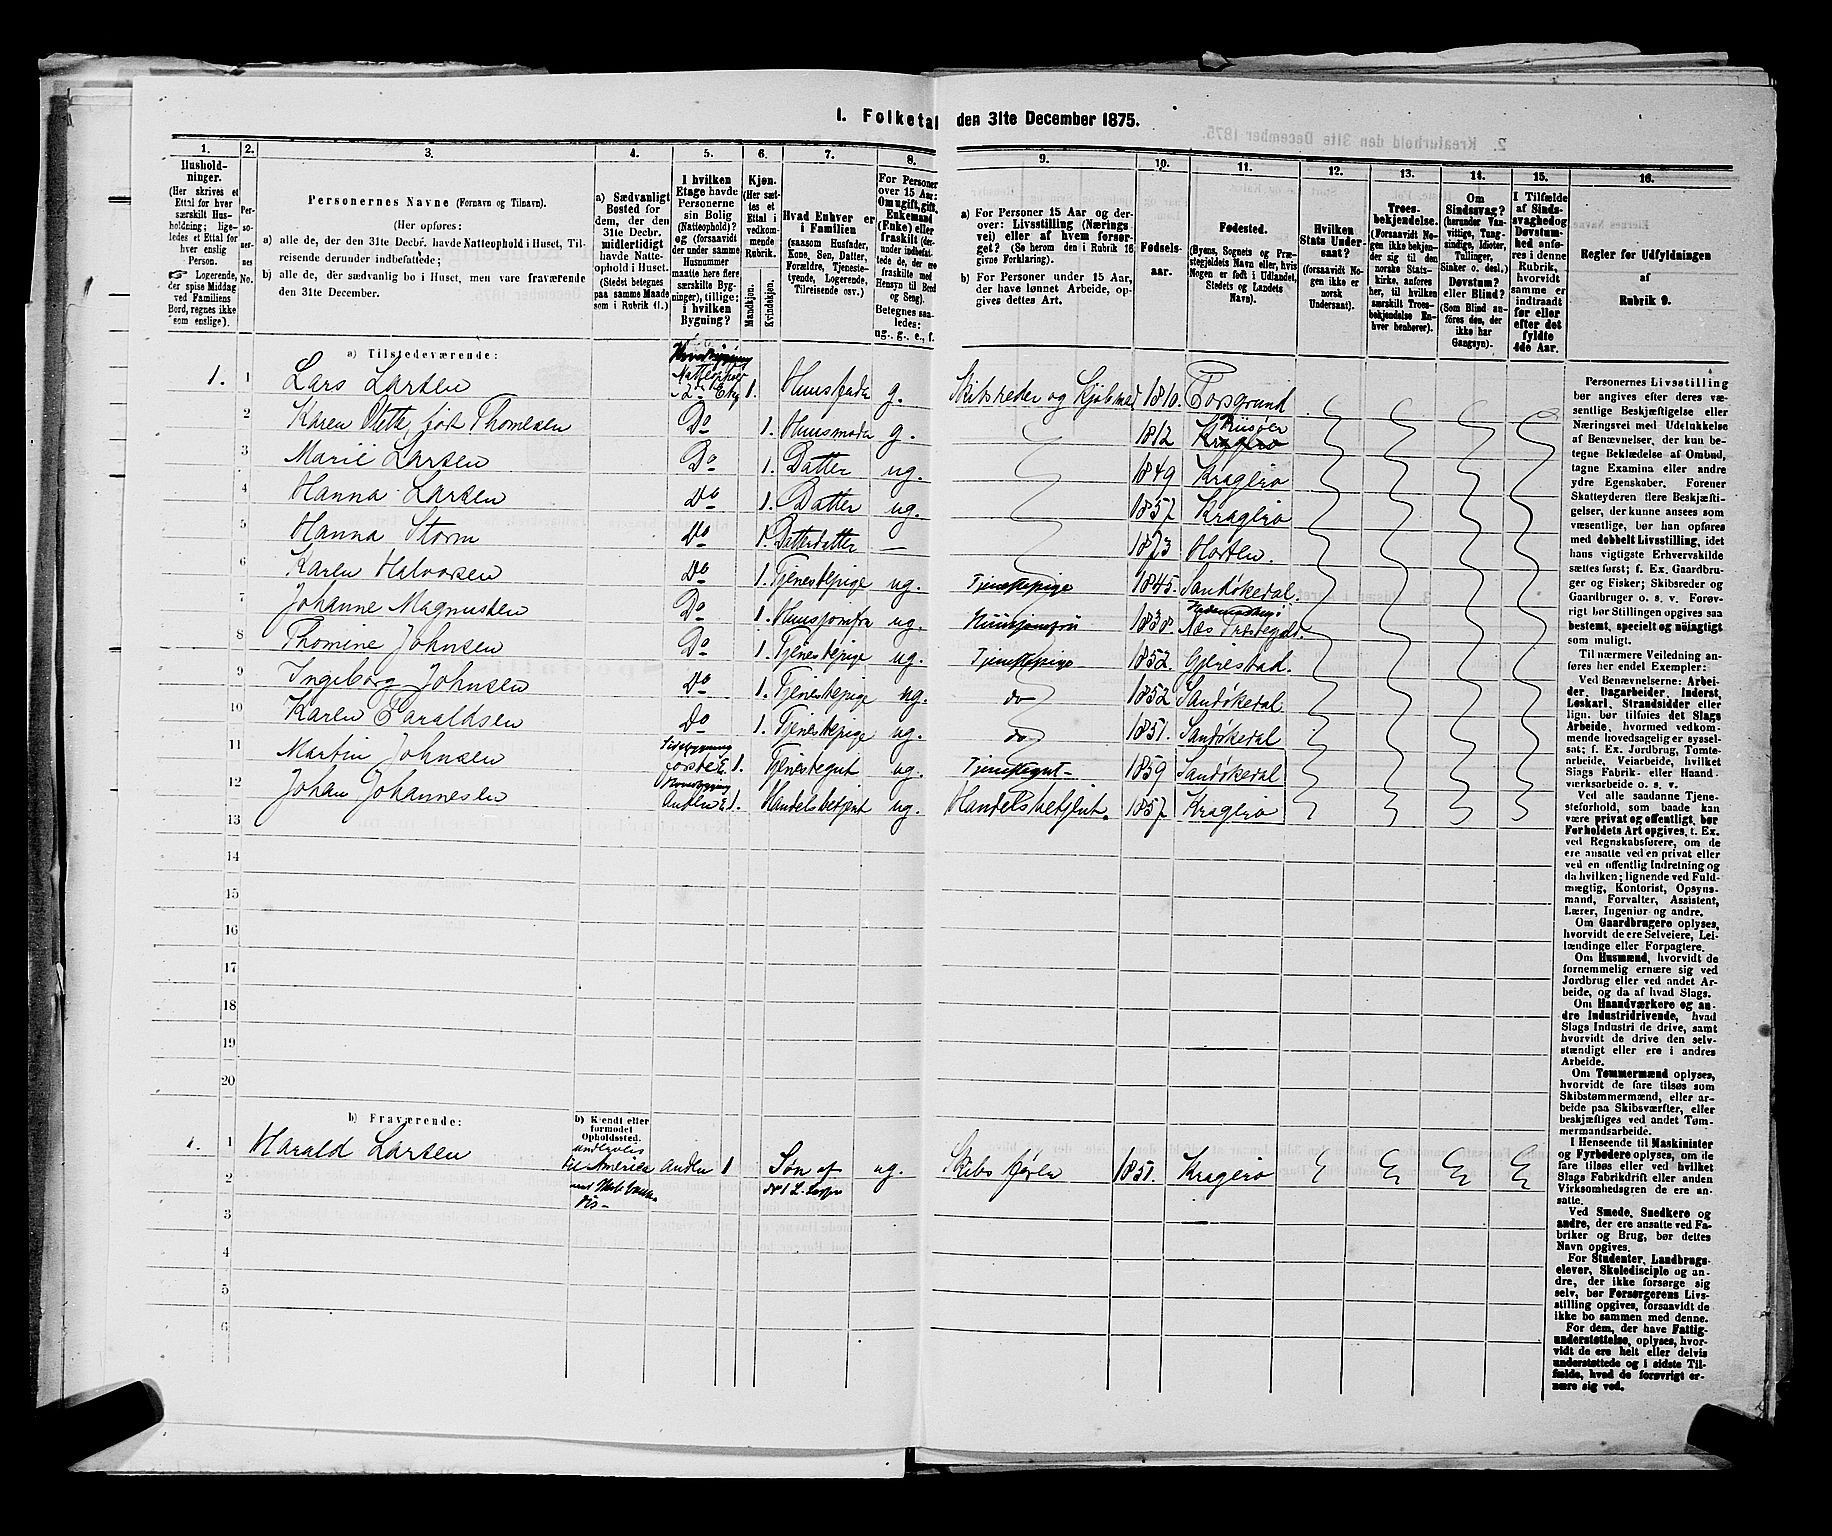 1. Folketal den 31te December 1875.
1. 2. 3. 4. 5. 6. 7. 8. 9. 10. 11. 12. 13. 14. 15. 16.
Hushold-
ninger.
(Her skrives et
Ettal for hver
særskilt Hus-
holdning; lige-
ledes et Ettal for
hver enslig
Person.
Logerende,
der spise Middag
ved Familiens
Bord, regnes ikke
som enslige).
Per-
so-
ner-
nes
No.
Personernes Navne (Fornavn og Tilnavn).
(Her opføres:
a) alle de, der den 31te Decbr. havde Natteophold i Huset, Til-
reisende derunder indbefattede;
b) alle de, der sædvanlig bo i Huset, men vare fraværende
den 31te December.
a) Sædvanligt
Bosted for
dem, der den
31te Decbr.
midlertidigt
havde Natte-
ophold i Huset.
(Stedet betegnes
paa samme Maade
som i Rubrik 11.)
I hvilken
Etage havde
Personerne
sin Bolig
(Natteophold)?
og (forsaavidt
der under samme
Husnummer
maatte høre flere
særskilte Byg-
ninger), tillige:
i hvilken
Bygning?
Kjøn.
(Her sæt-
tes et
Ettal i
vedkom-
mende
Rubrik.
Mandkjøn.
Kvindekjøn.
Hvad Enhver er
i Familien
(saasom Husfader,
Kone, Søn, Datter,
Forældre, Tjeneste-
tyende, Logerende,
Tilreisende osv.)
For Personer
over 15 Aar:
Om ugift, gift,
Enkemand
(Enke) eller
fraskilt (der-
under indbefat-
tede de, der ere
fraskilte med
Hensyn til Bord
og Seng).
Betegnes saa-
ledes:
ug., g., e., f.
a) For Personer 15 Aar og der-
over: Livsstilling (Nærings-
vei) eller af hvem forsør-
get? (Se herom den i Rubrik 16
givne Forklaring).
b) For Personer under 15 Aar,
der have lønnet Arbeide, op-
gives dettes Art.
Fødsels-
aar.
Fødested.
(Byens, Sognets og Præ-
stegjeldets Navn eller, hvis
Nogen er født i Udlandet,
Stedets og Landets
Navn).
Hvilken
Stats Under-
saat?
(forsaavidt No-
gen ikke er
norsk
Undersaat).
Troes-
bekjendelse.
(Forsaavidt No-
gen ikke bekjen-
der sig til den
norske Stats-
kirke, anføres
her, til hvilken
særskilt Troes-
bekjendelse En-
hver henhører).
Om
Sindssvag?
(herunder Van-
vittige, Tung-
sindige, Idioter,
Tullinger,
Sinker o. desl.)
Døvstum?
eller Blind?
(Som Blind an-
føres den, der
ikke har
Gangsyn).
I Tilfælde
af Sinds-
svaghed og
Døvstum-
hed anfø-
res i denne
Rubrik,
hvorvidt
samme er
indtraadt
før eller
efter det
fyldte
4de Aar.
Regler for Udfyldningen
af
Rubrik 9.
a) Tilstedeværende:
1. 1 Lars Larsen 2den Etg 1. Huusfader g. Skibsreder og Kjøbmand 1810. Porsgrund
2 Karen Otette født Thomesen Do 1. Huusmoder g. 1812 Risøer
3 Marie Larsen Do 1. Datter ug. 1849 Kragerø
4 Hanna Larsen Do 1. Datter ug. 1857 Kragerø
5 Hanna Storm Do 1. Datterdatter — 1873 Horten.
6 Karen Halvorsen Do 1. Tjenestepige ug. Tjenestepige 1845. Sandøkedal.
7 Johanne Magnussen Do 1. Huusjomfru ug. Huusjomfru 1838. Næs Præstegjeld.
8 Thomine Johnsen Do 1. Tjenestepige ug. Tjenestepige 1852. Gjerestad.
9 Ingeborg Johnsen Do 1. Tjenestepige ug. do 1852 Sandøkedal
10 Karen Taraldsen Do 1. Tjenestepige ug. do 1851. Sandøkedal
11 Martin Johnsen Sidebygning første E. 1. Tjenestegut ug. Tjenestegut 1859 Sandøkedal
12 Johan Johannesen Hovedbygning Anden E. 1. Handelsbetjent ug. Handelsbetjent. 1857 Kragerø
13
14
15
16
17
18
19
20
b) Fraværende:
b) Kjendt eller
formodet
Opholdssted.
1. 1 Harald Larsen underveis til America anden 1 Søn af No 1 L. Larsen ug. Skibsfører 1851. Kragerø
2
3
4
5
6
Personernes Livsstilling
bør angives efter deres væ-
sentlige Beskjæftigelse eller
Næringsvei med Udelukkelse
af Benævnelser, der kun be-
tegne Beklædelse af Ombud,
tagne Examina eller andre
ydre Egenskaber. Forener
Skatteyderen flere Beskjæfti-
gelser, der kunne ansees som
væsentlige, bør han opføres
med dobbelt Livsstilling, idet
hans vigtigste Erhvervskilde
sættes først; f. Ex. Gaardbru-
ger og Fisker; Skibsreder og
Gaardbruger o. s. v. Forøv-
rigt bør Stillingen opgives saa
bestemt, specielt og nøiagtigt
som muligt.
Til nærmere Veiledning an-
føres her endel Exempler:
Ved Benævnelserne: Arbei-
der, Dagarbeider, Inderst,
Løskarl, Strandsidder eller
lign. bør tilføies det Slags
Arbeide, hvormed vedkom-
mende hovedsagelig er syssel-
sat; f. Ex. Jordbrug, Tomte-
arbeide, Veiarbeide, hvilket
Slags Fabrik- eller Haand-
værksarbeide o. s. v.
Ved alle saadanne Tjene-
steforhold, som baade kan
være privat og offentligt, bør
Forholdets Art opgives, t. Ex.
ved Regnskabsførere, om de
ere ansatte ved en privat eller
ved en offentlig Indretning og
da hvilken; lignende ved Fuld-
mægtig, Kontorist, Opsyns-
mand, Forvalter, Assistent,
Lærer, Ingeniør og andre.
Om Gaardbrugere oplyses,
hvorvidt de ere Selveiere, Lei-
lændinge eller Forpagtere.
Om Husmænd, hvorvidt de
fornemmelig ernære sig ved
Jordbrug eller ved andet Ar-
beide, og da af hvad Slags.
Om Haandværkere og an-
dre Industridrivende, hvad
Slags Industri de drive, samt
hvorvidt de drive den selv-
stændigt eller ere i andres
Arbeide.
Om Tømmermænd oplyses,
hvorvidt de fare tilsøs som
Skibstømmermænd, eller ar-
beide paa Skibsværfter, eller
beskjæftiges ved andet Tøm-
mermandsarbeide.
I Henseende til Maskinister
og Fyrbødere oplyses, om de
fare tilsøs eller ved hvilket
Slags Fabrikdrift eller anden
Virksomhedsgren de ere an-
satte.
Ved Smede, Snedkere og
andre, der ere ansatte ved Fa-
briker og Brug, bør dettes
Navn opgives.
For Studenter, Landbrugs-
elever, Skoledisciple og an-
dre, der ikke forsørge sig
selv, bør Forsørgerens Livs-
stilling opgives, forsaavidt de
ikke bo sammen med denne.
For dem, der have Fattig-
understøttelse, oplyses, hvor-
vidt de ere helt eller delvis
understøttede og i sidste Til-
fælde, hvad de forøvrigt er-
nære sig ved.